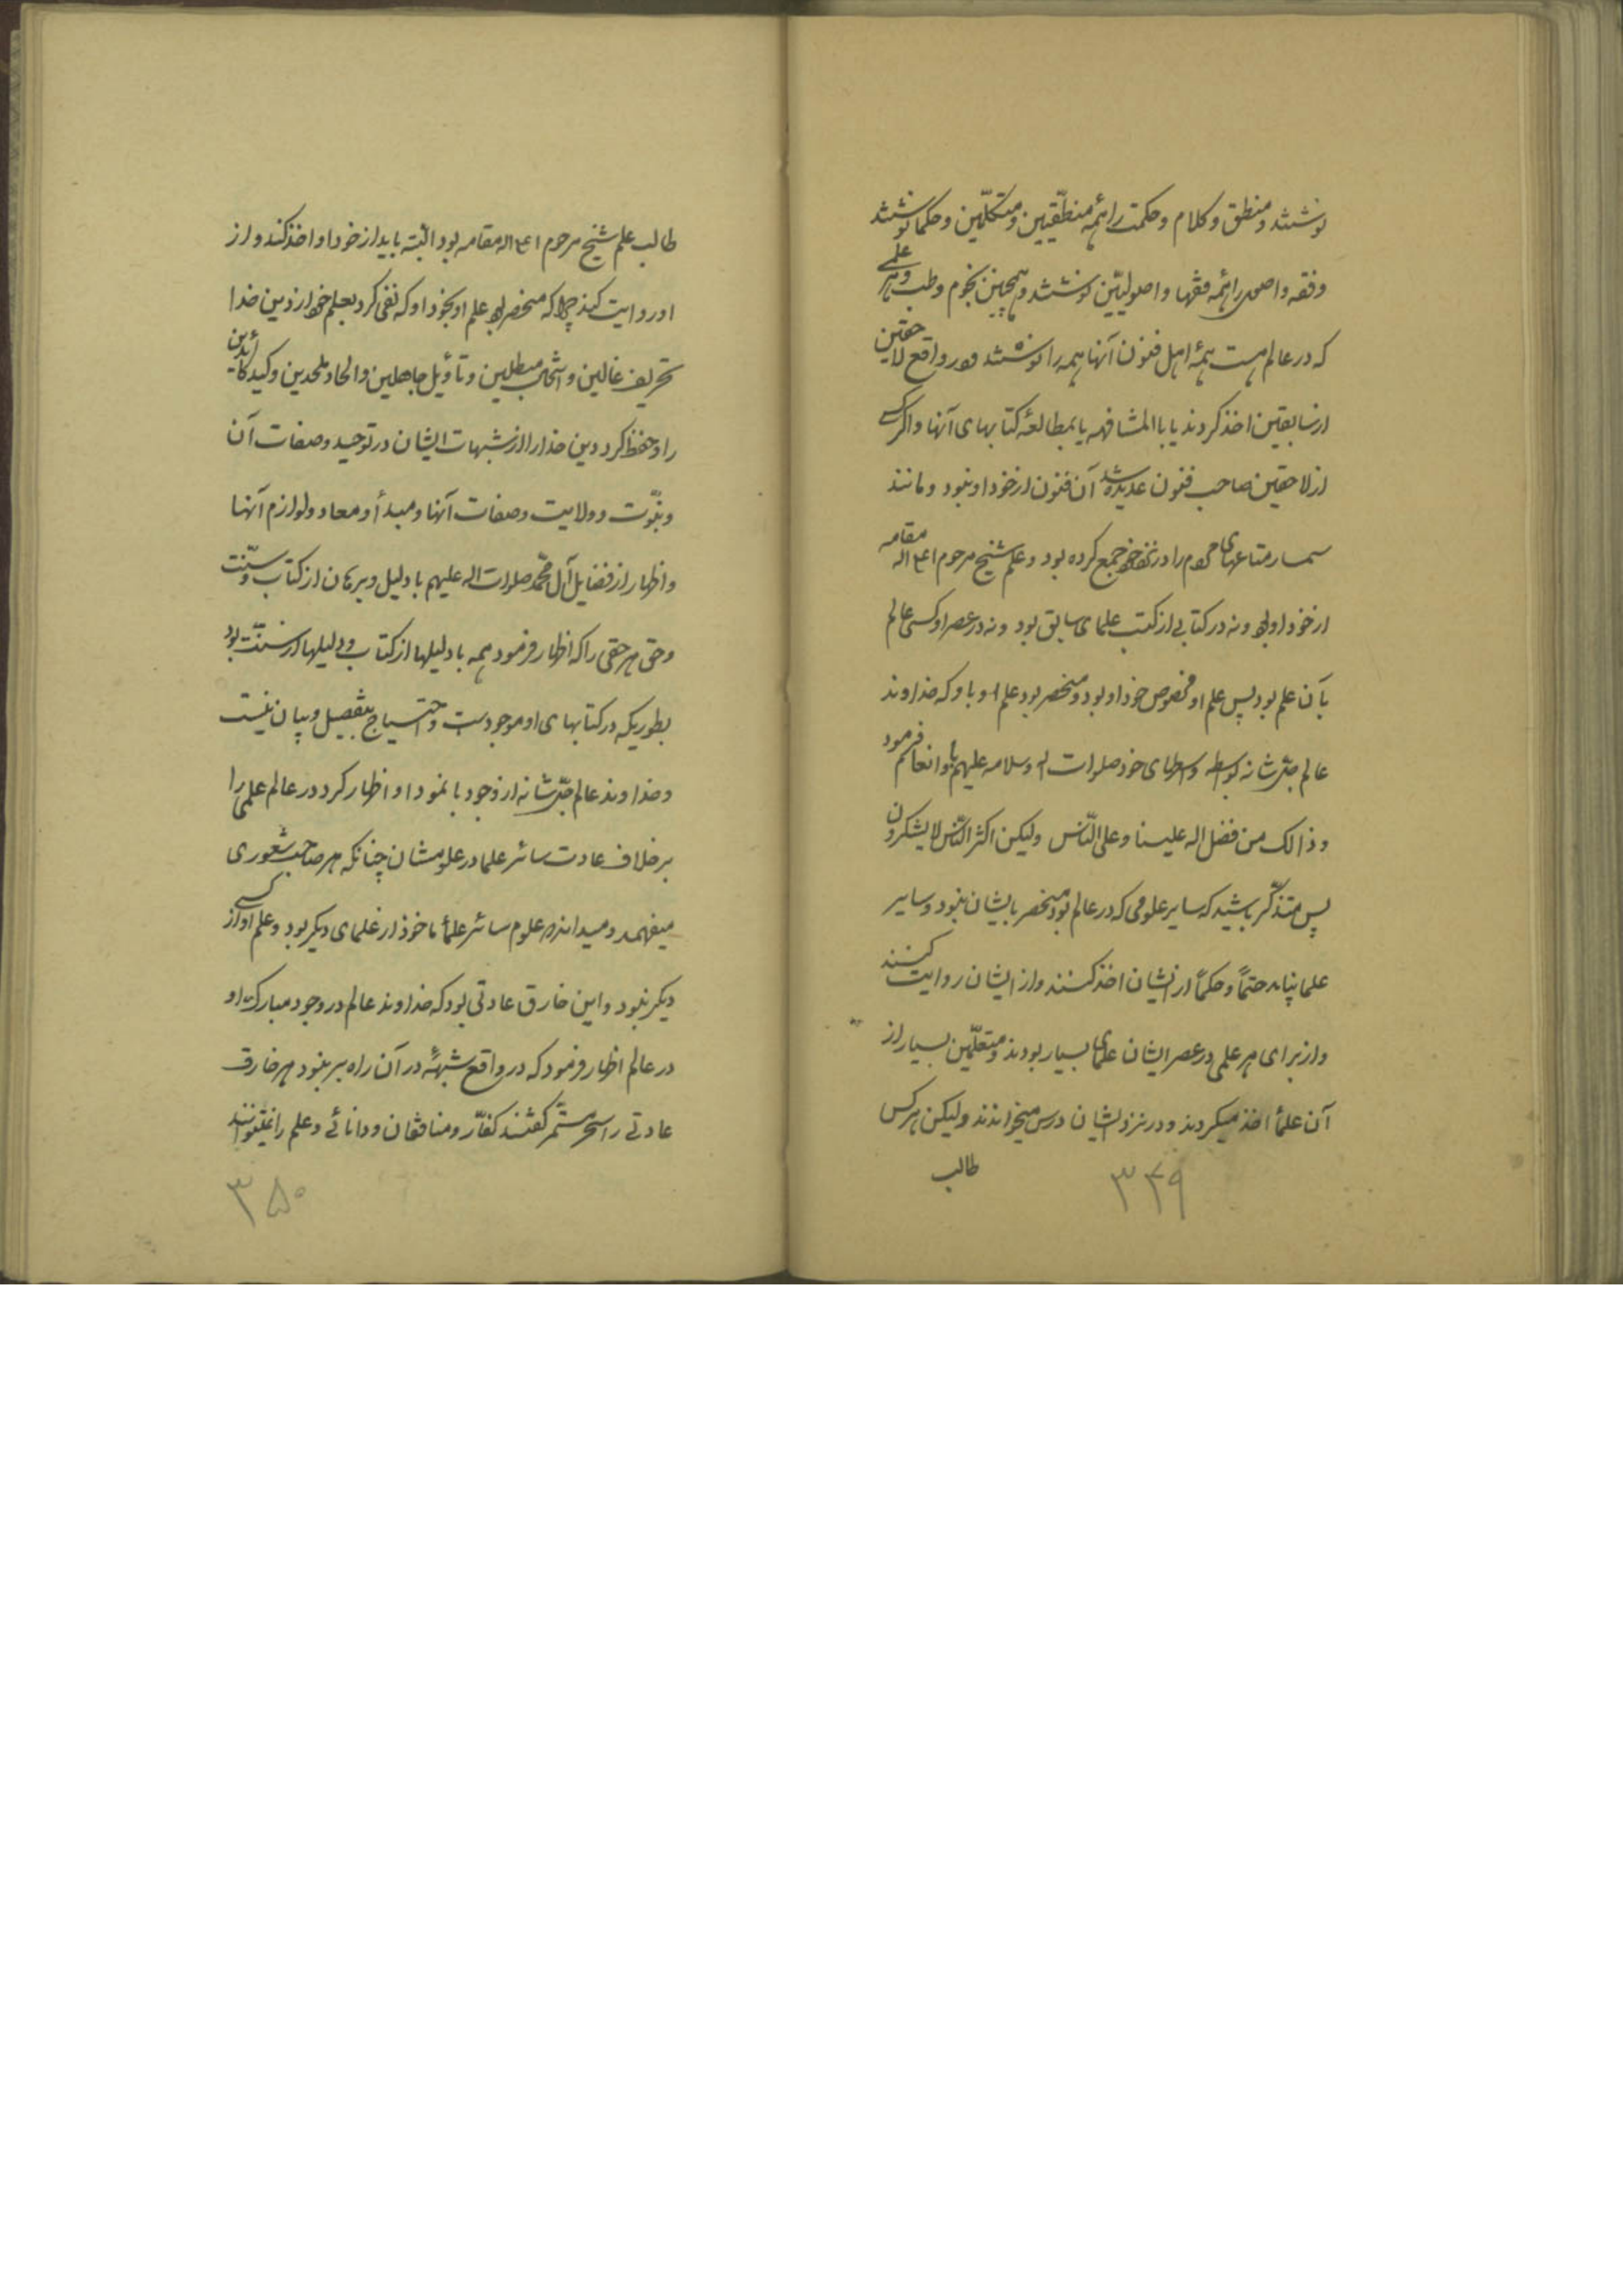 نوشتند و منطق و کلام و حکمت را همهٔ منطقیین و متکلّمین و حکما نوشتند
و فقه و اصول را همهٔ فقها و اصولیّین نوشتند و همچنین نجوم و طب و هر علمی
که در عالم هست همهٔ اهل فنون آنها همه را نوشتند و در واقع لاحقین
از سابقین اخذ کردند یا بالمشافهه یا بمطالعهٔ کتابهای آنها و اگر کسی
از لاحقین صاحب فنون عدیده شد آن فنون از خود او نبود و مانند
سمسار متاعهای مردم را در نزد خود جمع کرده بود و علم شیخ مرحوم اعلی اله مقامه
از خود او بود و نه در کتابی از کتب علمای سابق بود و نه در عصر او کسی عالم
بآن علم بود پس علم او مخصوص خود او بود و منحصر بود علم او باو که خداوند
عالم جلّ شانه بواسطه وسطهای خود صلوات اله و سلامه علیهم باو انعام فرمود
و ذالک من فضل اله علینا و علی النّاس ولیکن اکثر النّاس لایشکرون
پس متذکّر باشید که سایر علومی که در عالم بود منحصر بایشان نبود و سایر
علما نباید حتماً و حکماً از ایشان اخذ کنند و از ایشان روایت کنند
و از برای هر علمی در عصر ایشان علمای بسیار بودند و متعلّمین بسیار از
آن علما اخذ میکردند و در نزد ایشان درس میخواندند ولیکن هرکس
طالب
۳۴۹
طالب علم شیخ مرحوم اعلی اله مقامه بود البّته باید از خود او اخذ کند و از
او روایت کند چرا که منحصر بود علم او بخود او که نفی کرد بعلم خود از دین خدا
تحریف غالین و انتحال مبطلین و تأویل جاهلین و الحاد ملحدین و کید کائدین
را و حفظ کرد دین خدا را از شبهات ایشان در توحید و صفات آن
و نبوّت و ولایت و صفات آنها و مبدأ و معاد و لوازم آنها
و اظهار از فضایل آل محمّد صلوات اله علیهم با دلیل و برهان از کتاب و سنّت
و حق هر حقی را که اظهار فرمود همه با دلیلها از کتاب و دلیلها از سنّت بود
بطوریکه در کتابهای او موجود است و احتیاج بتفصیل و بیان نیست
و خداوند عالم جلّ شانه از وجود با نمود او اظهار کرد در عالم علمی را
برخلاف عادت سائر علما در علومشان چنانکه هر صاحب شعوری
میفهمد و میداند که علوم سائر علما ماخوذ از علمای دیگر بود و علم او از کسی
دیگر نبود و این خارق عادتی بود که خداوند عالم در وجود مبارک او
در عالم اظهار فرمود که در واقع شبههٔ در آن راه بر نبود هر خارق
عادتی را سحر مستمر گفتند کفّار و منافقان و دانائی و علم را نمیتوانند
۳۵۰